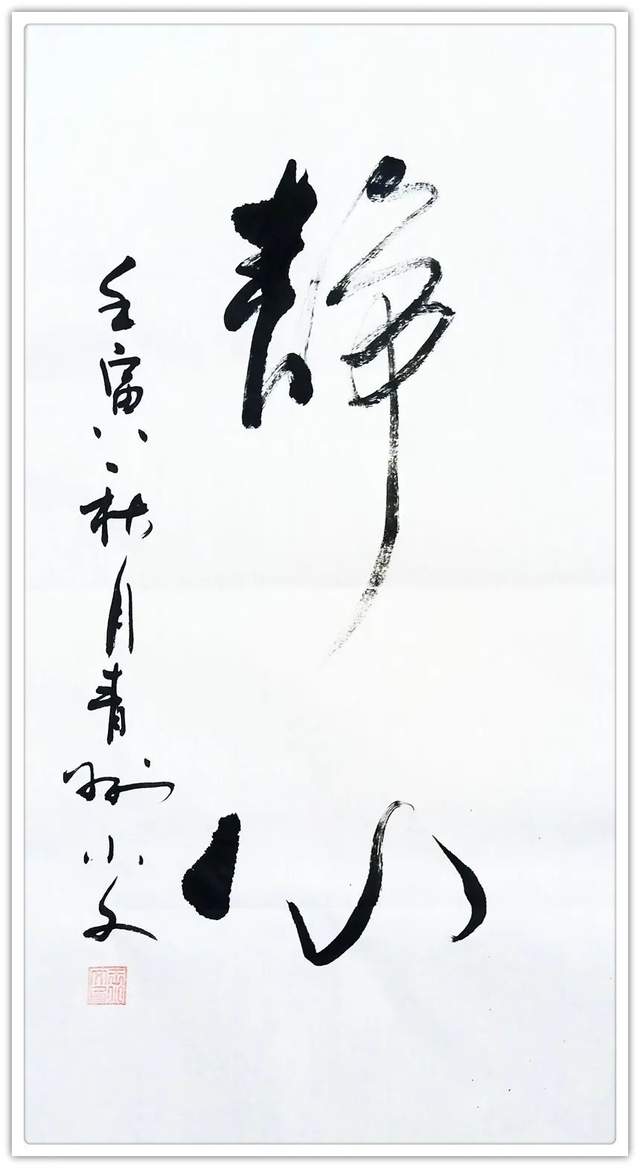 静心
壬寅秋月青州小文